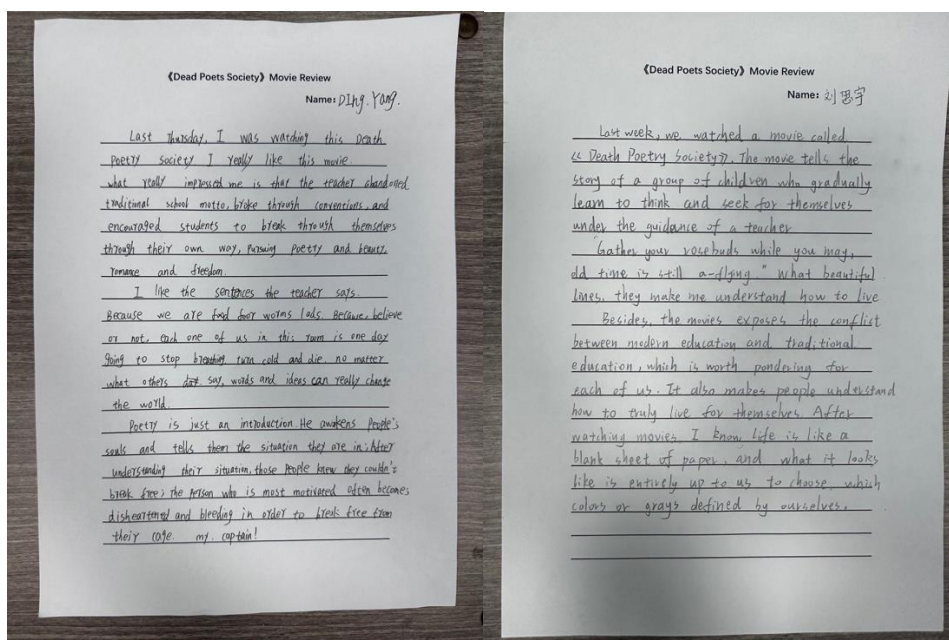 《Dead Poets Society》 Movie Review
Name: DIng. Yang.
Last Thursday, I was watching this Death
Poetry Society I really like this movie.
what really impressed me is that the teacher abandoned
traditional school motto, broke through conventions, and
encouraged students to break through themselves
through their own way, pursuing poetry and beauty,
romance and freedom.
I like the sentences the teacher says.
Because we are food foor worms lads. Because, believe
or not, each one of us in this room is one day
going to stop breathing, turn cold and die. no matter
what others say, words and ideas can really change
the world.
Poetry is just an introduction. He awakens people's
souls and tells them the situation they are in. After
understanding their situation, those people knew they couldn't
break free; The person who is most motivated often becomes
disheartened and bleeding in order to break free from
their cage. my captain!
《Dead Poets Society》 Movie Review
Name: 刘思宇
Last week, we watched a movie called
《Death Poetry Society》. The movie tells the
story of a group of children who gradually
learn to think and seek for themselves
under the guidance of a teacher
"Gather your rosebuds while you may,
old time is still a-flying." What beautiful
lines, they make me understand how to live
Besides, the movies exposes the conflict
between modern education and traditional
education, which is worth pondering for
each of us. It also makes people understand
how to truly live for themselves. After
watching movies, I know life is like a
blank sheet of paper, and what it looks
like is entirely up to us to choose, which
colors or grays defined by ourselves.